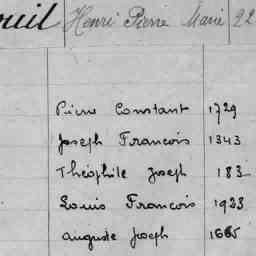 ouil Henri Pierre Marie 92
Pierre Constant 1729
Joseph Francois 1343
Théophile Joseph 183
Louis Francois 1933
Auguste Joseph